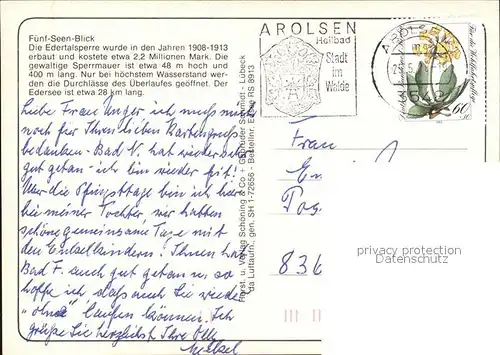 Fünf-Seen-Blick
Die Edertalsperre wurde in den Jahren 1908-1913
erbaut und kostete etwa 2,2 Millionen Mark. Die
gewaltige Sperrmauer ist etwa 48 m hoch und
400 m lang. Nur bei höchstem Wasserstand wer-
den die Durchlässe des Überlaufes geöffnet. Der
Edersee ist etwa 28 km lang.
Liebe Frau Unger ich muß mich
noch für Ihren lieben Kartengruß
bedanken. Bad N hat wieder sehr
gut getan – ich bin wieder fit!
Über die Pfingsttage bin ich hier
bei meiner Tochter, wir hatten
schöne gemeinsame Tage mit
den Enkelkindern! Ihnen hat
Bad F. auch gut getan u. so
hoffe ich daß auch Sie wieder
"ohne" laufen können. Ich
grüße Sie herzlichst Ihre
Horst. u. Verlag Schöning & Co + Gebrüder Schmidt - Lübeck
da Luftaufn., gen. SH 1-72656 - Bestellnr. Edrse RS 8913
AROLSEN
Heilbad
Stadt
im
Walde
AROLSEN
60
Frau
836
privacy protection
Datenschutz